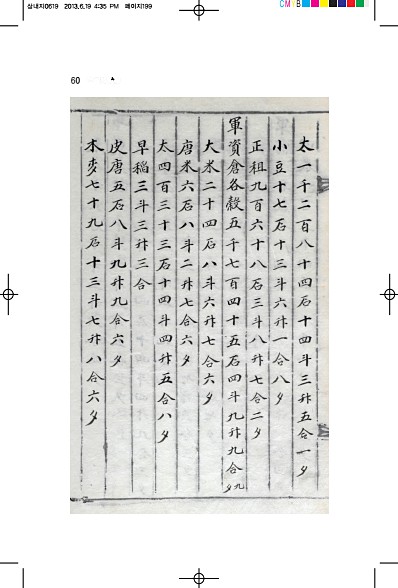 삼내지0619 2013.6.19 4:35 PM 페이지199
CMYB
60
太一千二百八十四石十四斗三升五合一夕
小豆十七石十三斗六升一合八夕
正租九百六十八石三斗八升七合二夕
軍資倉各穀五千七百四十五石四斗九升九合九夕
大米二十四石八斗六升七合六夕
唐米六石八斗二升七合六夕
太四百三十三石十四斗四升五合八夕
早稻三斗三升三合
皮唐五石八斗九升九合六夕
木麦七十九石十三斗七升八合六夕